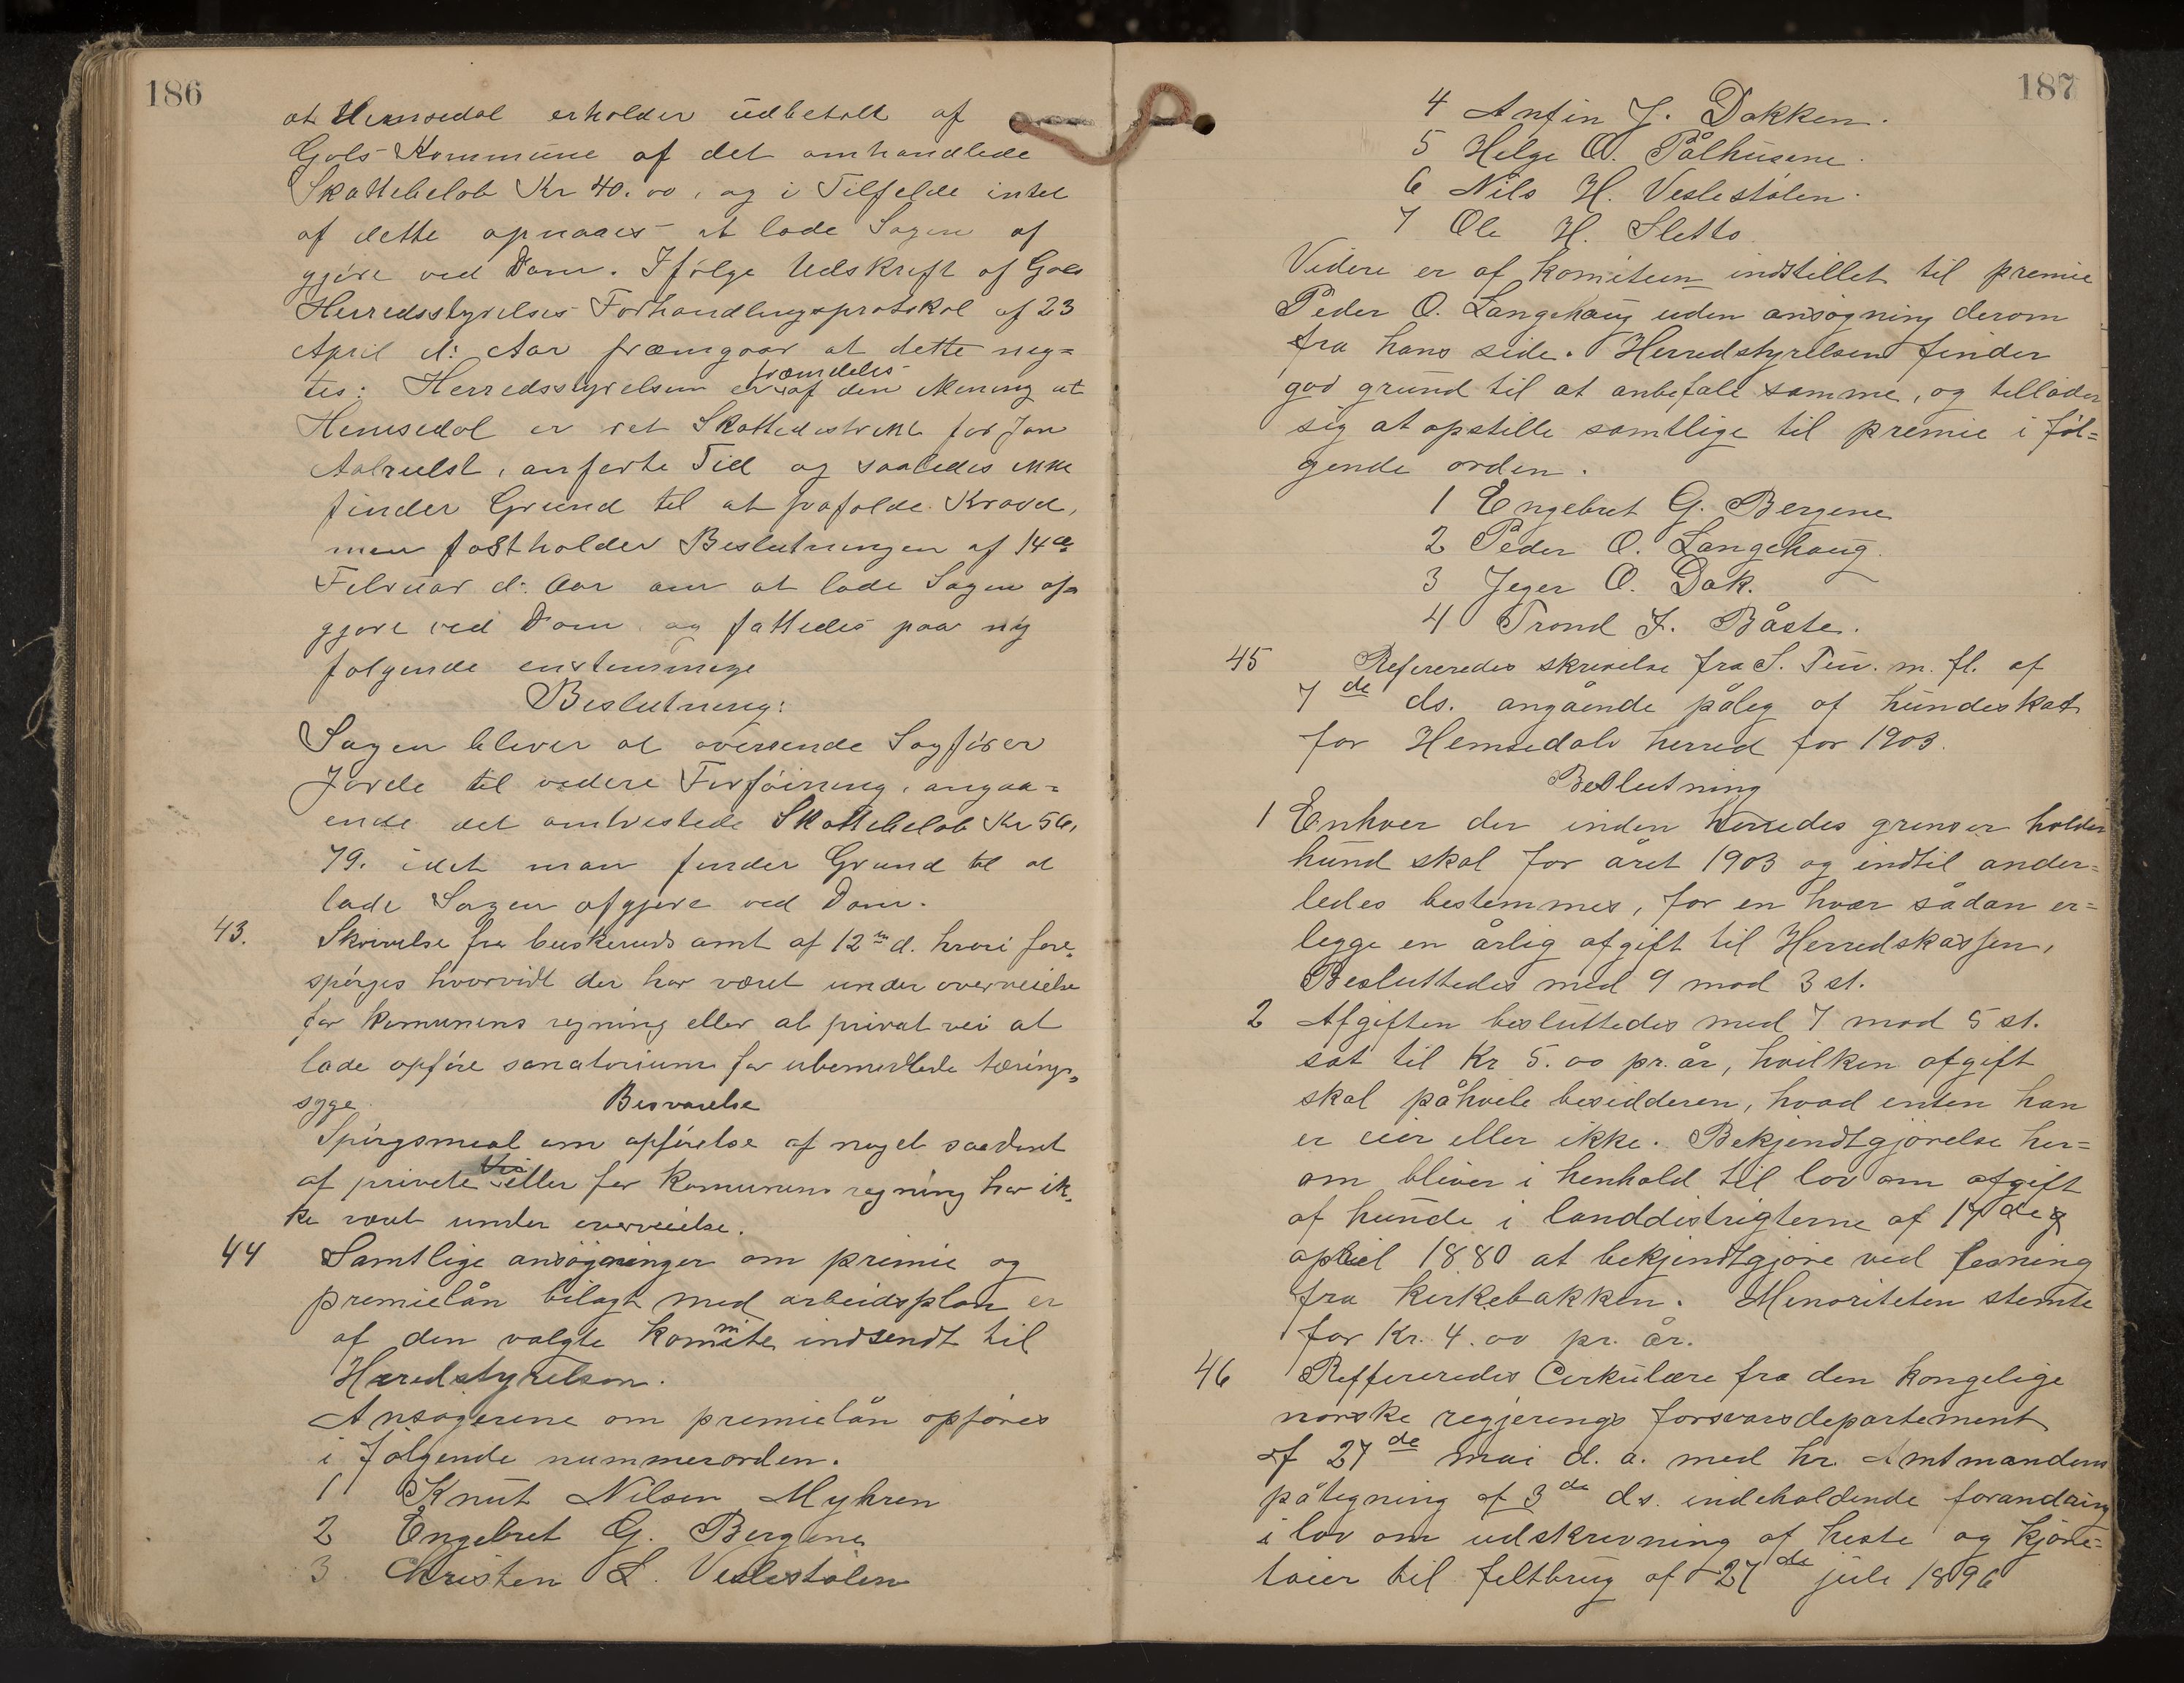 186
at Hemsedal erholder udbetalt af
Gols Kommune af det omhandlede
Skattebeløb Kr 40.00, og i Tilfelde intet
af dette opnaaes at lade Sagen af
gjøre ved Dom. Ifølge Udskrift af Gols
Herredsstyrelses Forhandlingsprotokol af 23
April d: Aar fræmgaar at dette neg=
tes: Herredsstyrelsen er fræmdeles af den Mening at
Hemsedal er ret Skattedistrikt for Jon
anførte Tid og saaledes ikke
finder Grund til at frafalde Kravet,
men fastholder Beslutningen af 14de
Februar d: Aar om at lade Sagen af
gjøre ved Dom og fattedes paa ny
følgende enstemmige
Beslutning:
Sagen bliver at oversende Sagfører
Jorde til videre Forføining, angaa=
ende det omtvistede Skattebeløb Kr 56,
79. idet man finder Grund til at
lade Sagen afgjøre ved Dom.
43. Skrivelse fra buskeruds amt af 12te d. hvori fore=
spørges hvorvidt der har været under overveielse
for Komunens regning eller at privat vei at
lade opføre sanatorium for ubemidlede tærings=
syge. Besvarelse
Spørgsmaal om opførelse af noget saadant
af private eller for Komunens regning har ik=
ke været under overveielse.
44 Samtlige ansøgninger om premie og
premielån bilagt med arbeidsplan er
af den valgte komite indsendt til
Heredstyrelsen.
Ansøgerene om premielån opføres
i følgende nummerorden.
1 Knut Nilsen Myhren
2 Engebret G. Bergene
3. Christen L. Veslestølen
187
4 Anfin J. Dokken.
5 Helge O. Pålhusene.
6 Nils H. Veslestølen.
7 Ole H. Sletto
Videre er af komiteen indstillet til premie
Peder O. Langehaug uden ansøgning derom
fra hans side. Herredstyrelsen finder
god grund til at anbefale samme, og tillader
sig at opstille samtlige til premie i føl=
gende orden.
1 Engebret G. Bergene
2 Peder O. Langehaug.
3 Jeger O. Dok.
4 Trond J. Båste.
45 Refereredes skrivelse fra S. Tuv. m. fl. af
7de ds. angående pålæg af hundeskat
for Hemsedals herred for 1903.
Beslutning
1 Enhver der inden herredes grenser holder
hund skal for året 1903 og indtil ander=
ledes bestemmes, for en hver sådan er=
legge en årlig afgift til Herredskassen,
Besluttedes med 9 mod 3 st.
2 Afgiften besluttedes med 7 mod 5 st.
sat til Kr 5.00 pr. år, hvilken afgift
skal påhvile besidderen, hvad enten han
er eier eller ikke. Bekjendtgjørelse her=
om bliver i henhold til lov om afgift
af hunde i landdistrigterne af 17de
april 1880 at bekjendtgjøre ved læsning
fra kirkebakken. Minoriteten stemte
for Kr. 4.00 pr. år.
46 Reffereredes Cirkulære fra den kongelige
norske regjerings forsvarsdepartement
af 27de mai d. a. med hr. Amtmandens
påtegning af 3de ds. indeholdende forandring
i lov om udskrivning af heste og kjøre=
tøier til feltbrug af 27de juli 1896